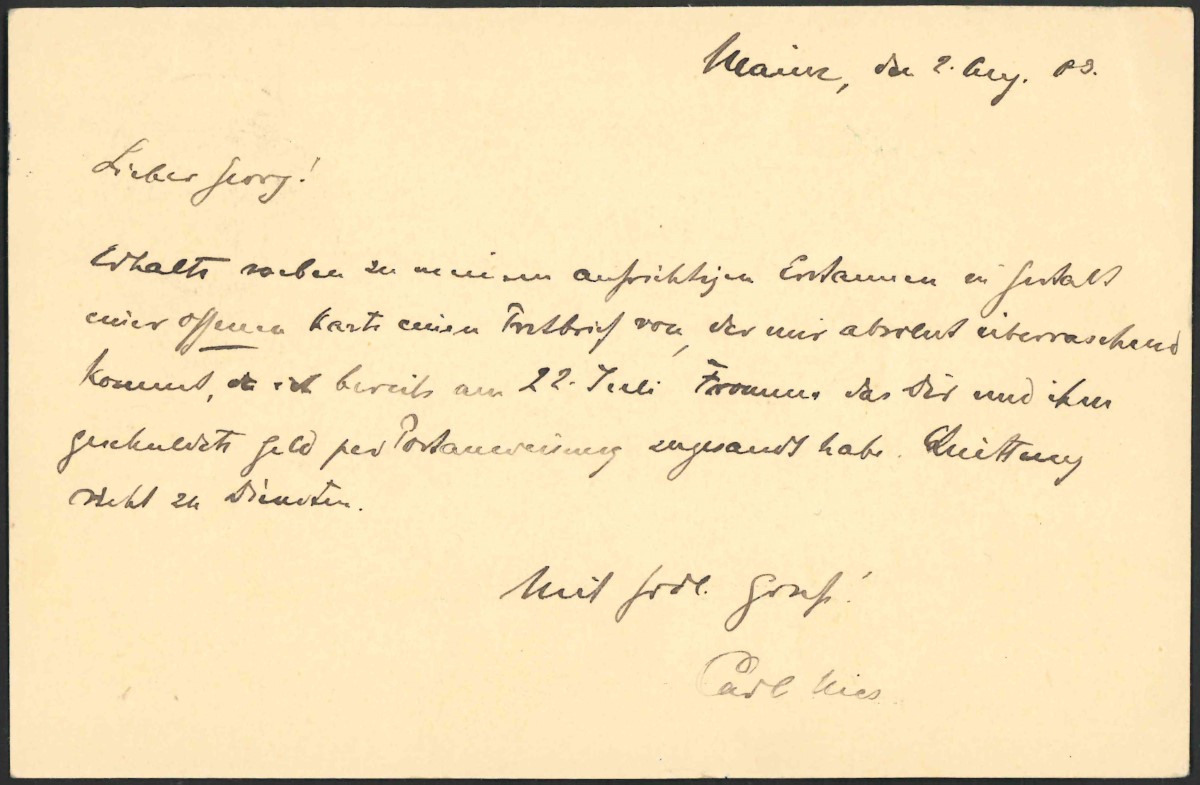 Mainz, den 2. Aug. 03.
Lieber Georg!
Erhalte soeben zu meinem aufrichtigen Erstaunen in Gestalt
einer offenen Karte einen von, der mir absolut überraschend
kommt, da ich bereits am 22. Juli Fromm das Dir und ihm
geschuldete Geld per Postanweisung zugesandt habe. Quittung
steht zu Diensten.
Mit frdl. Gruß!
Carl Nies